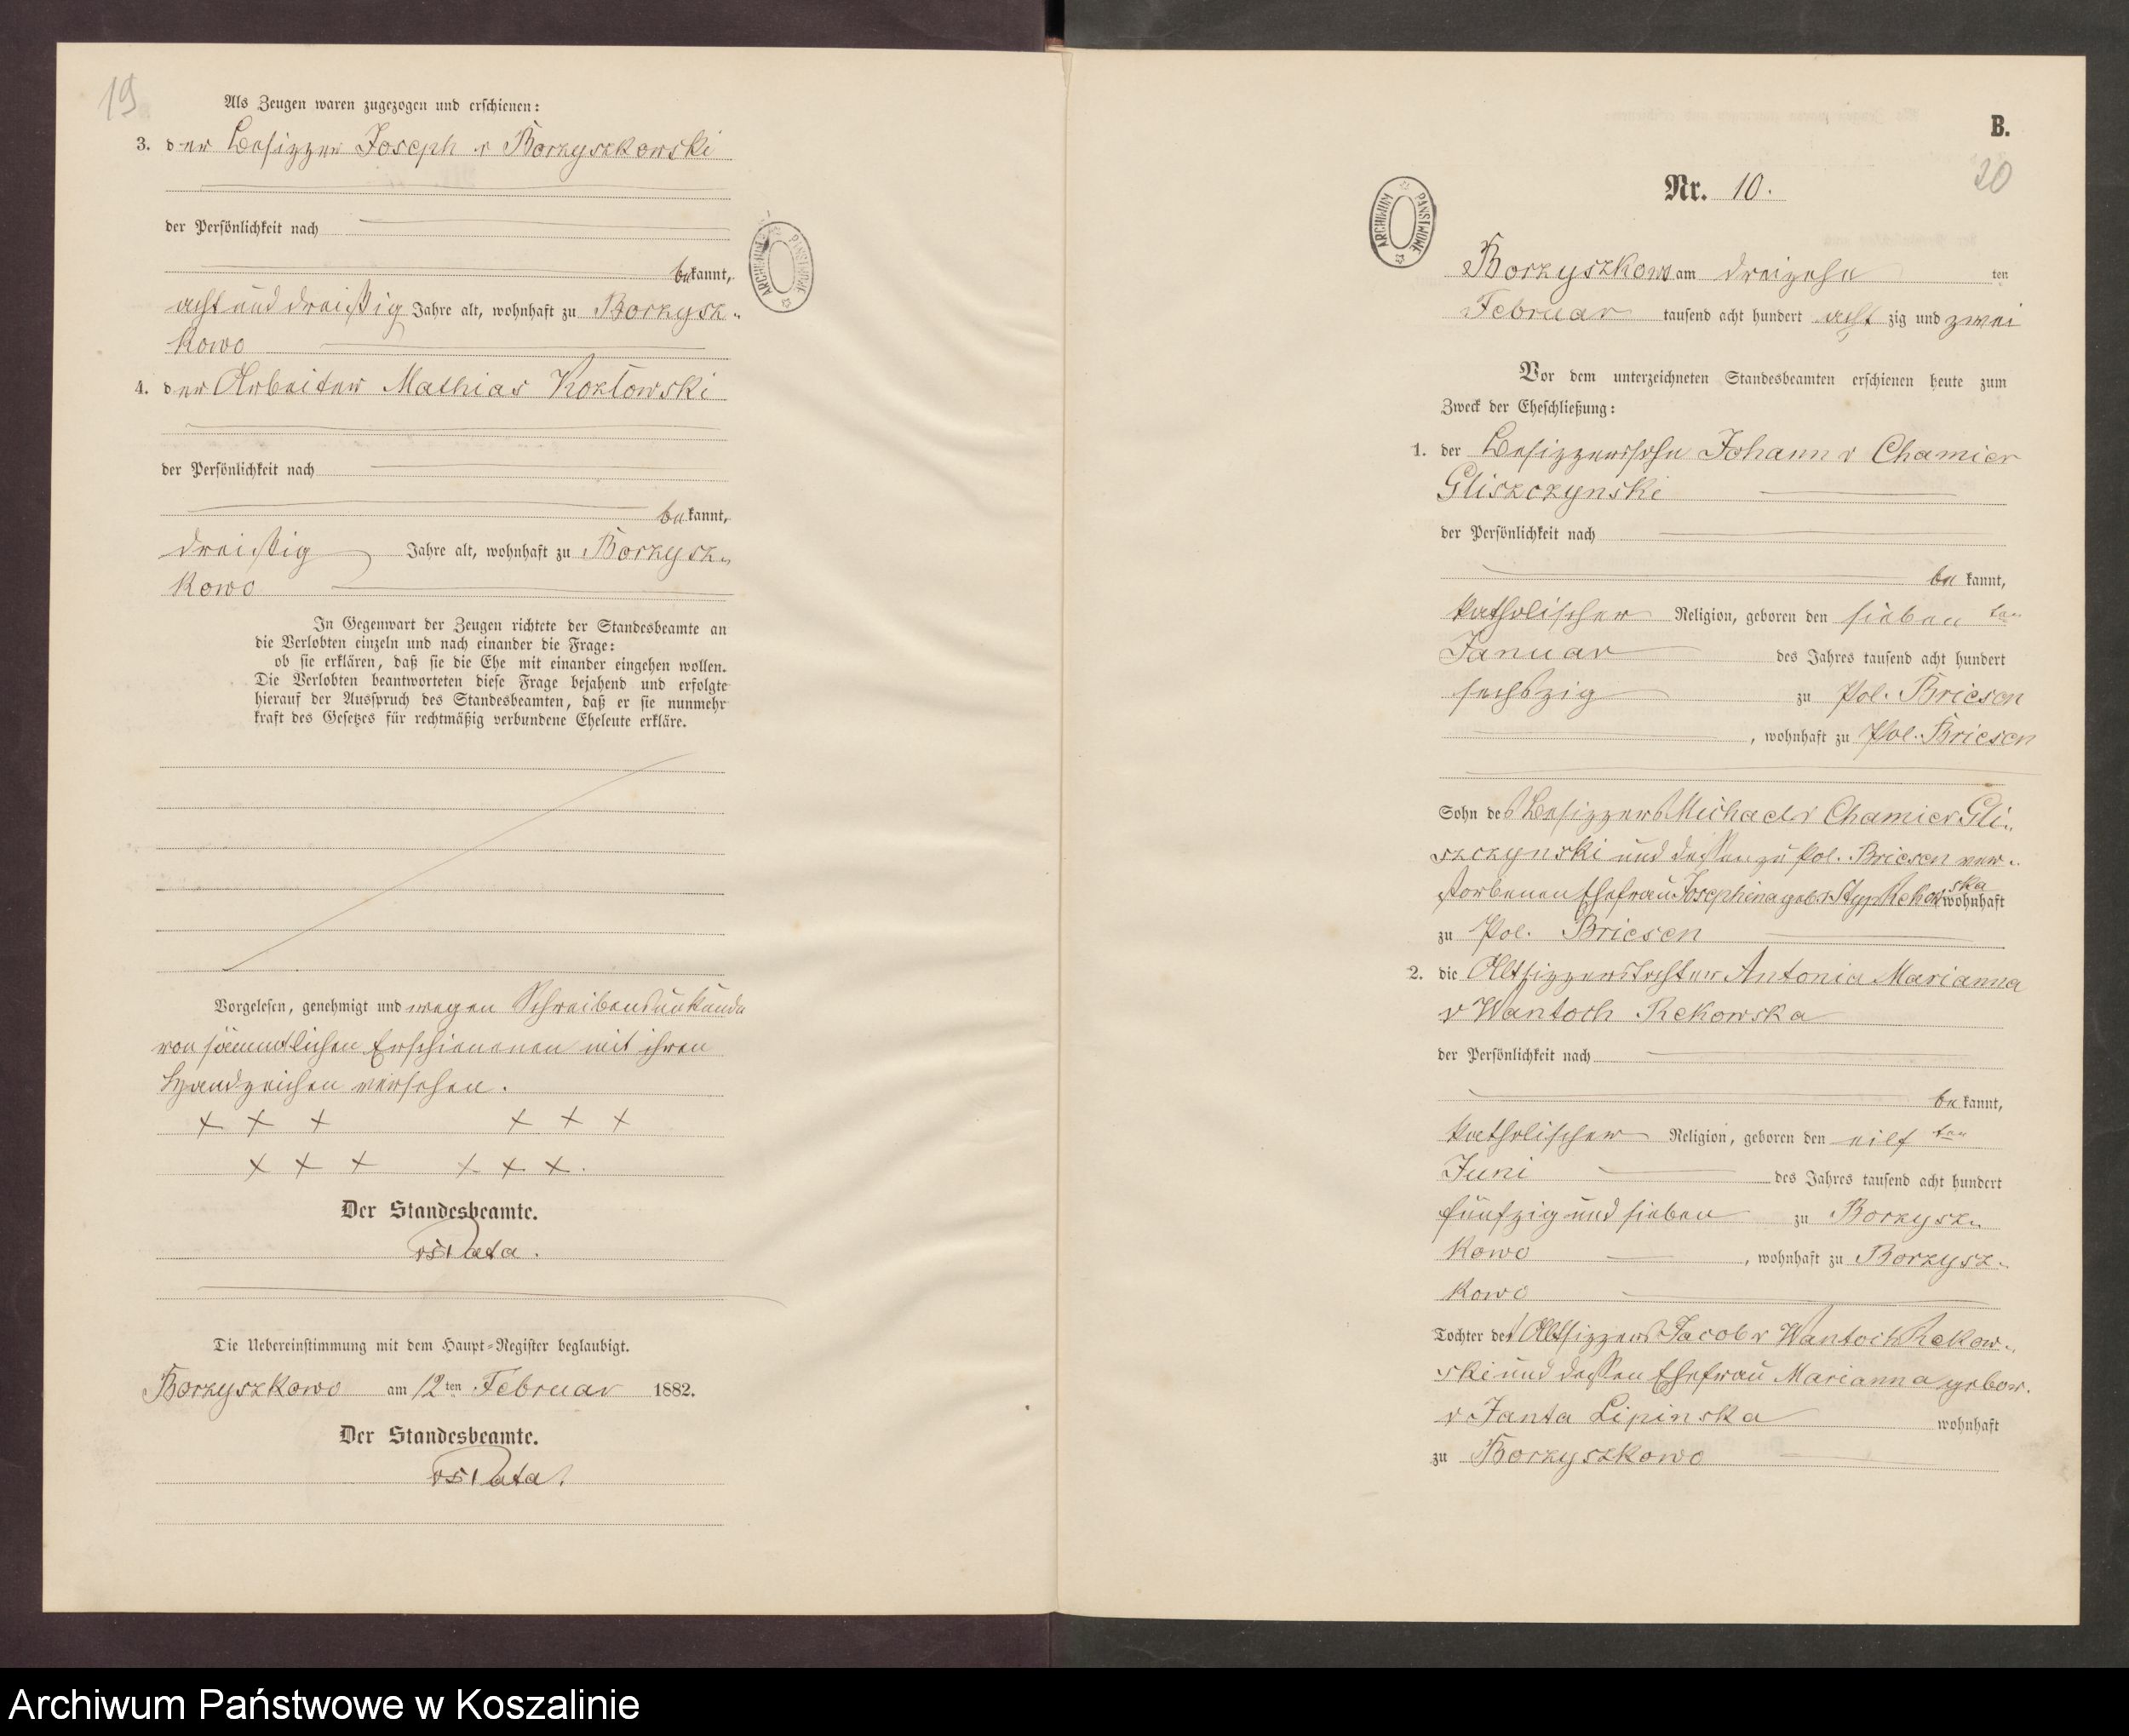 19
Als Zeugen waren zugezogen und erschienen:
3. der Besitzer Joseph v Borzyszkowski
der Persönlichkeit nach
bekannt,
acht und dreißig Jahre alt, wohnhaft zu Borzysz-
kowo
4. der Arbeiter Mathias Kozłowski
der Persönlichkeit nach
bekannt,
dreißig Jahre alt, wohnhaft zu Borzysz-
kowo
In Gegenwart der Zeugen richtete der Standesbeamte an
die Verlobten einzeln und nach einander die Frage:
ob sie erklären, daß sie die Ehe mit einander eingehen wollen.
Die Verlobten beantworteten diese Frage bejahend und erfolgte
hierauf der Ausspruch des Standesbeamten, daß er sie nunmehr
kraft des Gesetzes für rechtmäßig verbundene Eheleute erkläre.
Vorgelesen, genehmigt und wegen Schreibensunkunde
von sämmtlichen Erschienenen mit ihren
Handzeichen versehen.
+ + + + + +
+ + + + + +.
Der Standesbeamte.
Die Uebereinstimmung mit dem Haupt-Register beglaubigt.
Borzyszkowo am 12ten Februar 1882.
Der Standesbeamte.
B.
20
Nr. 10.
ARCHIWUM PAŃSTWOWE
Borzyszkowo am dreizehn ten
Februar tausend acht hundert acht zig und zwei
Vor dem unterzeichneten Standesbeamten erschienen heute zum
Zweck der Eheschließung:
1. der Besitzerssohn Johann v Chamier
Gliszczynski
der Persönlichkeit nach
bekannt,
katholischer Religion, geboren den sieben ten
Januar des Jahres tausend acht hundert
sechszig zu Pol. Briesen
, wohnhaft zu Pol. Briesen
Sohn des Besitzers Michael v Chamier Gli-
szczynski und dessen zu Pol. Briesen ver-
storbenen Ehefrau Josephina geb. v Styp Rekowska wohnhaft
zu Pol. Briesen
2. die Altsitzerstochter Antonia Marianna
v Wantoch Rekowska
der Persönlichkeit nach
bekannt,
katholischer Religion, geboren den eilf ten
Juni des Jahres tausend acht hundert
fünfzig und sieben zu Borzysz-
kowo, wohnhaft zu Borzysz-
kowo
Tochter des Altsitzers Jacob v Wantoch Rekow-
ski und dessen Ehefrau Marianna gebor.
v Janta Lipinska wohnhaft
zu Borzyszkowo
Archiwum Państwowe w Koszalinie